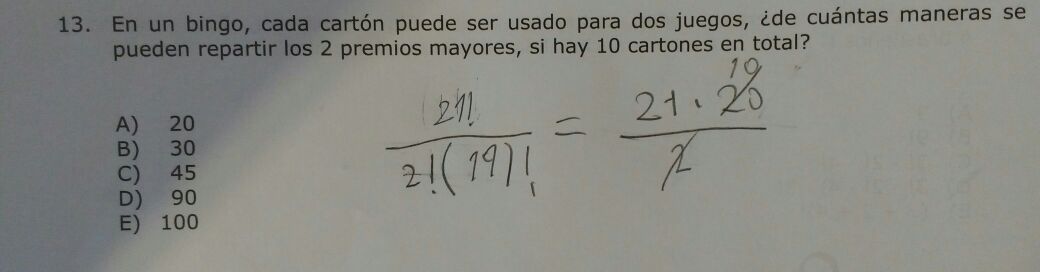 13. En un bingo, cada cartón puede ser usado para dos juegos, ¿de cuántas maneras se
pueden repartir los 2 premios mayores, si hay 10 cartones en total?
A) 20
B) 30
C) 45
D) 90
E) 100
21! / 2!(19)! = 21 · 20 / 2
10